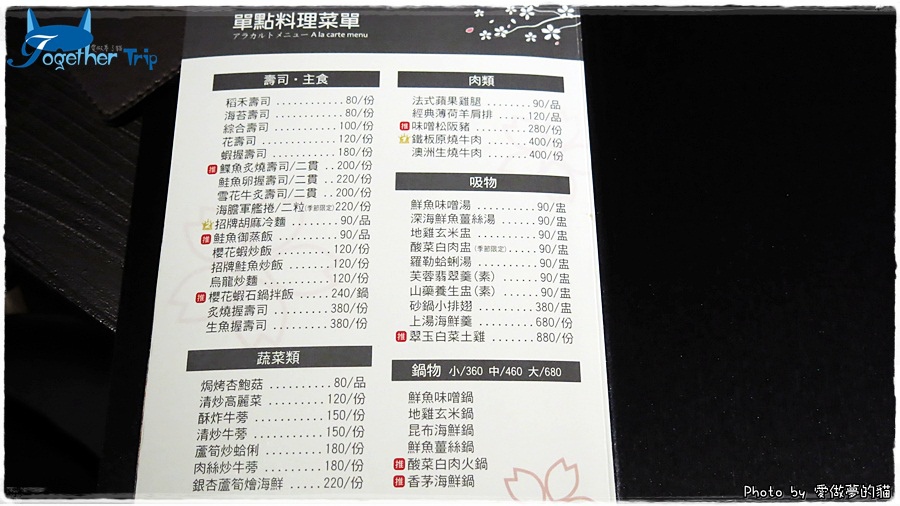 愛做夢の貓
Together Trip
單點料理菜單
アラカルトメニュー A la carte menu
壽司・主食
稻禾壽司 ............ 80/份
海苔壽司 ............ 80/份
綜合壽司 ............ 100/份
花壽司 ............ 120/份
蝦握壽司 ............ 180/份
推 鰈魚炙燒壽司/二貫 .. 200/份
鮭魚卵握壽司/二貫 .. 220/份
雪花牛炙壽司/二貫 .. 200/份
海膽軍艦捲/二粒(季節限定) 220/份
招牌胡麻冷麵 ........ 90/品
推 鮭魚御蒸飯 .......... 90/品
櫻花蝦炒飯 .......... 120/份
招牌鮭魚炒飯 ........ 120/份
烏龍炒麵 ............ 120/份
推 櫻花蝦石鍋拌飯 ..... 240/鍋
炙燒握壽司 .......... 380/份
生魚握壽司 .......... 380/份
蔬菜類
焗烤杏鮑菇 .......... 80/品
清炒高麗菜 ......... 120/份
酥炸牛蒡 ........... 150/份
清炒牛蒡 ........... 150/份
蘆筍炒蛤俐 ......... 180/份
肉絲炒牛蒡 ......... 180/份
銀杏蘆筍燴海鮮 ..... 220/份
肉類
法式蘋果雞腿 ....... 90/品
經典薄荷羊肩排 ..... 120/品
推 味噌松阪豬 ........ 280/份
鐵板原燒牛肉 ....... 400/份
澳洲生燒牛肉 ....... 400/份
吸物
鮮魚味噌湯 ......... 90/盅
深海鮮魚薑絲湯 ..... 90/盅
地雞玄米盅 ......... 90/盅
酸菜白肉盅(季節限定) ..... 90/盅
羅勒蛤蜊湯 ......... 90/盅
芙蓉翡翠羹(素) ..... 90/盅
山藥養生盅(素) ..... 90/盅
砂鍋小排翅 ........ 380/盅
上湯海鮮羹 ........ 680/份
推 翠玉白菜土雞 ...... 880/份
鍋物 小/360 中/460 大/680
鮮魚味噌鍋
地雞玄米鍋
昆布海鮮鍋
鮮魚薑絲鍋
推 酸菜白肉火鍋
推 香茅海鮮鍋
Photo by 愛做夢的貓